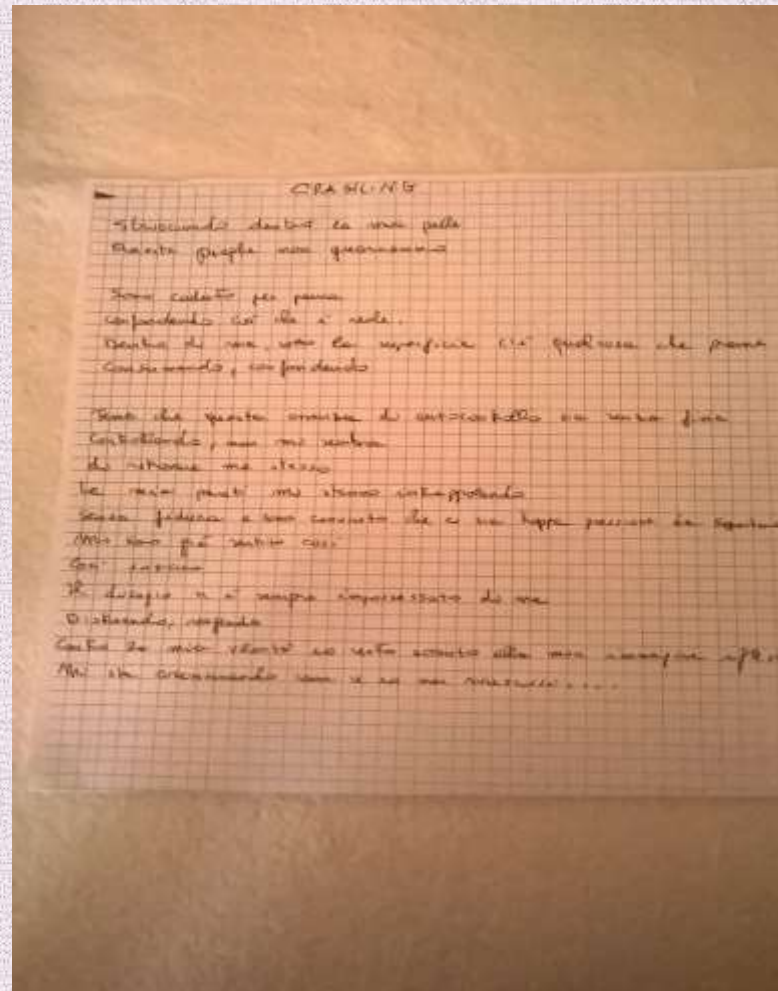 CRAWLING
Strisciando dentro la mia pelle
Queste piaghe non guariranno
Sono caduto per paura
confondendo ciò che è reale.
Dentro di me, sotto la superficie c'è qualcosa che preme
Consumando, confondendo
Temo che questa mancanza di autocontrollo sia senza fine
Controllando, non mi sembra
di ritrovare me stesso
Le mie pareti mi stanno intrappolando
Senza fiducia e sono convinto che c'è troppa pressione da
Mi sono già sentito così
Così insicuro
Il disagio si è sempre impossessato di me
Distraendo,
Contro la mia volontà sto accanto alla mia immagine
Mi sta ossessionando